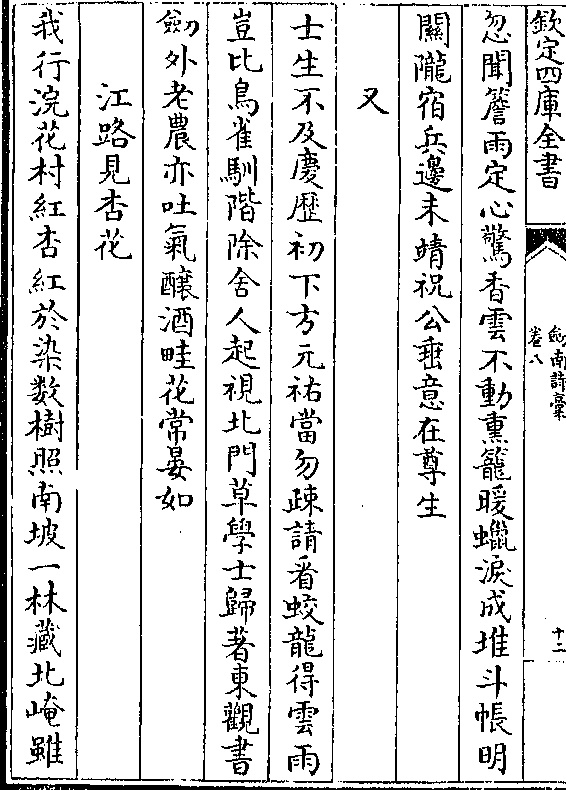 欽定四庫全書
劒南詩槀
卷八
十二
忽聞簷雨定心驚香雲不動熏籠暖蠟淚成堆斗帳明
關隴宿兵邊未靖祝公垂意在尊生
又
士生不及慶厯初下方元祐當勿疎請看蛟龍得雲雨
豈比鳥雀馴階除舍人起視北門草學士歸著東觀書
劒外老農亦吐氣釀酒畦花常晏如
江路見杏花
我行浣花村紅杏紅於染数樹照南坡一林藏北崦雖